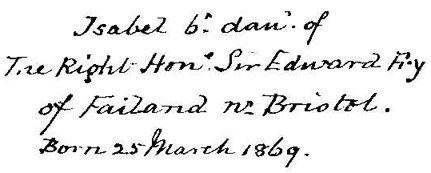 Isabel 6th. dau'. of
The Right Hon'. Sir Edward Fry
of Failand nr. Bristol.
Born 25 March 1869.